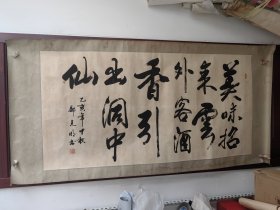 美味招
来云
外客酒
香引
出洞中
仙
乙亥年中秋